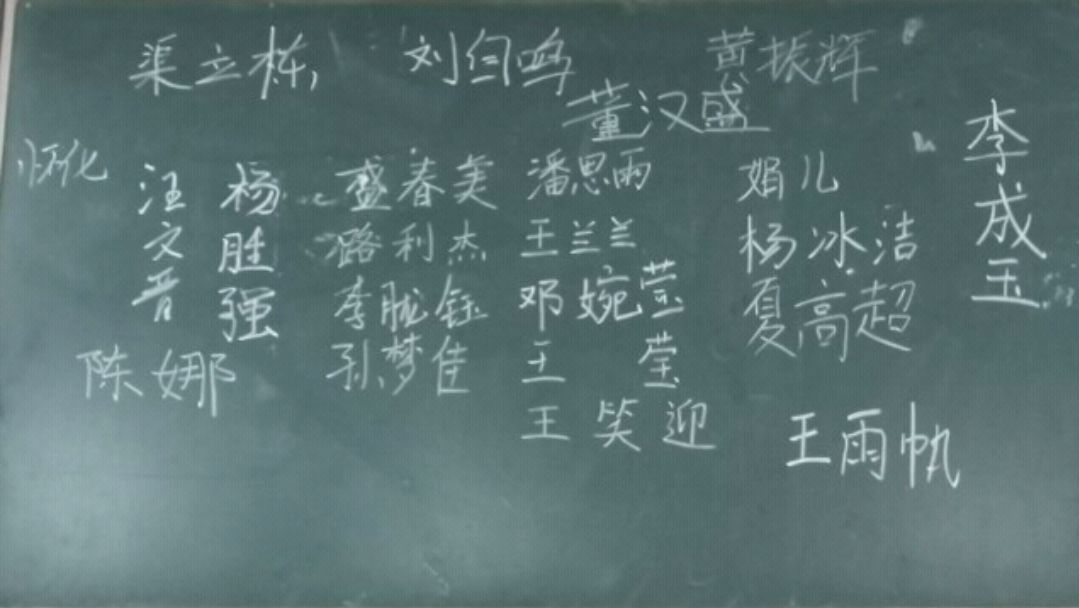 渠立栋, 刘自鸣 黄振辉
董汉盛
李成玉
怀化
汪文晋
杨胜强
陈娜
盛春美
潞利杰
李胧钰
孙梦佳
潘思雨
王兰兰
邓婉莹
王莹
王笑迎
娟儿
杨冰洁
夏高超
王雨帆